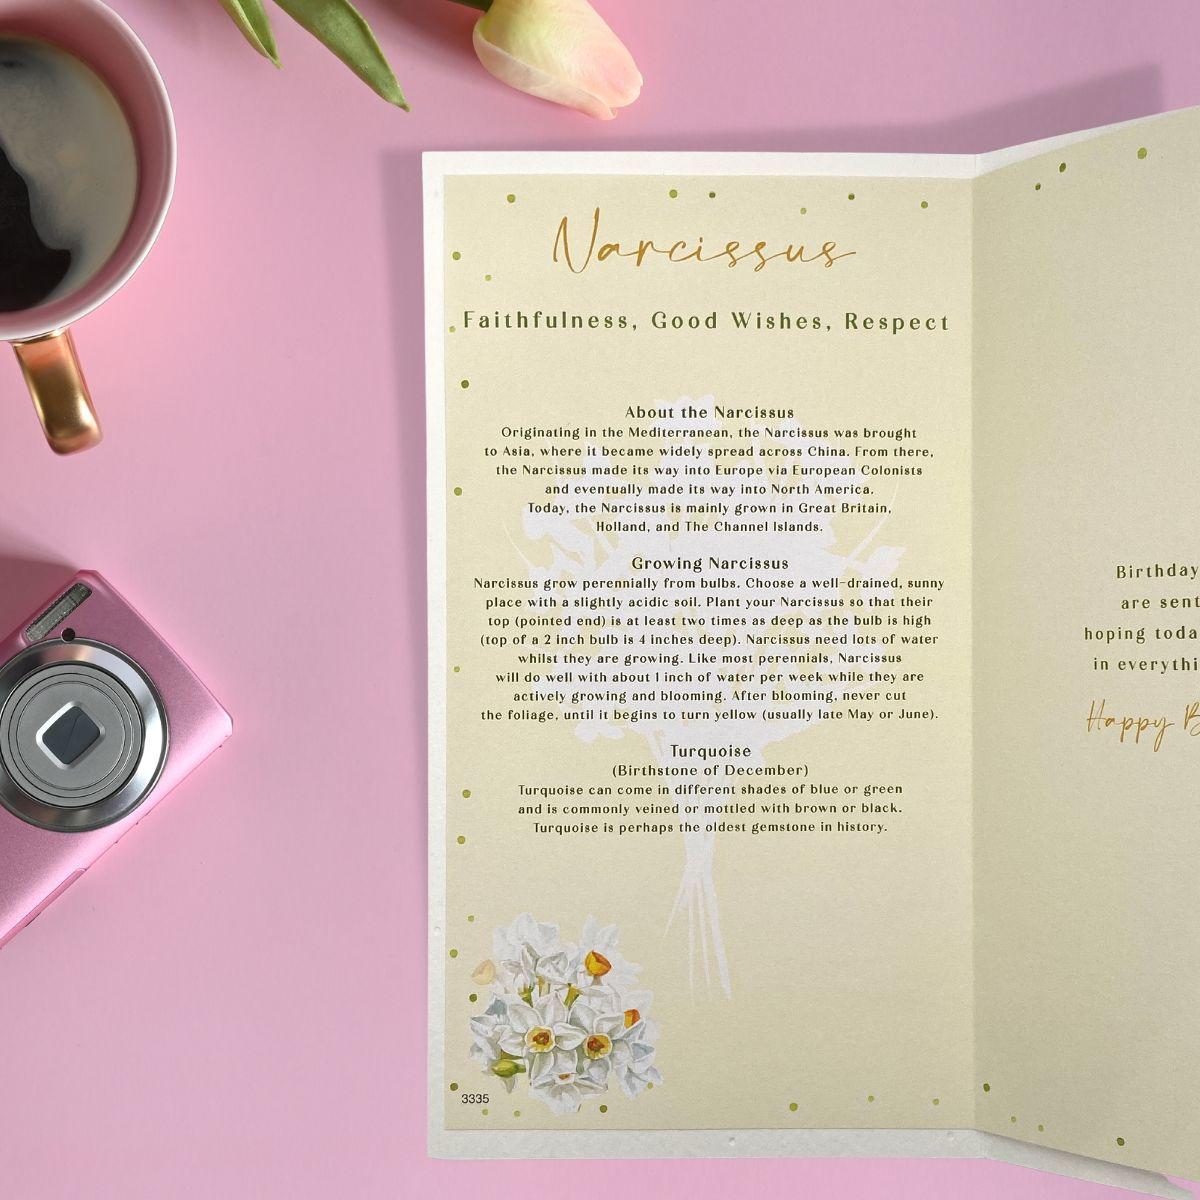 Narcissus
Faithfulness, Good Wishes, Respect
About the Narcissus
Originating in the Mediterranean, the Narcissus was brought
to Asia, where it became widely spread across China. From there,
the Narcissus made its way into Europe via European Colonists
and eventually made its way into North America.
Today, the Narcissus is mainly grown in Great Britain,
Holland, and The Channel Islands.
Growing Narcissus
Narcissus grow perennially from bulbs. Choose a well-drained, sunny
place with a slightly acidic soil. Plant your Narcissus so that their
top (pointed end) is at least two times as deep as the bulb is high
(top of a 2 inch bulb is 4 inches deep). Narcissus need lots of water
whilst they are growing. Like most perennials, Narcissus
will do well with about 1 inch of water per week while they are
actively growing and blooming. After blooming, never cut
the foliage, until it begins to turn yellow (usually late May or June).
Turquoise
(Birthstone of December)
Turquoise can come in different shades of blue or green
and is commonly veined or mottled with brown or black.
Turquoise is perhaps the oldest gemstone in history.
3335
Birthday
are sent
hoping toda
in everythi
Happy B